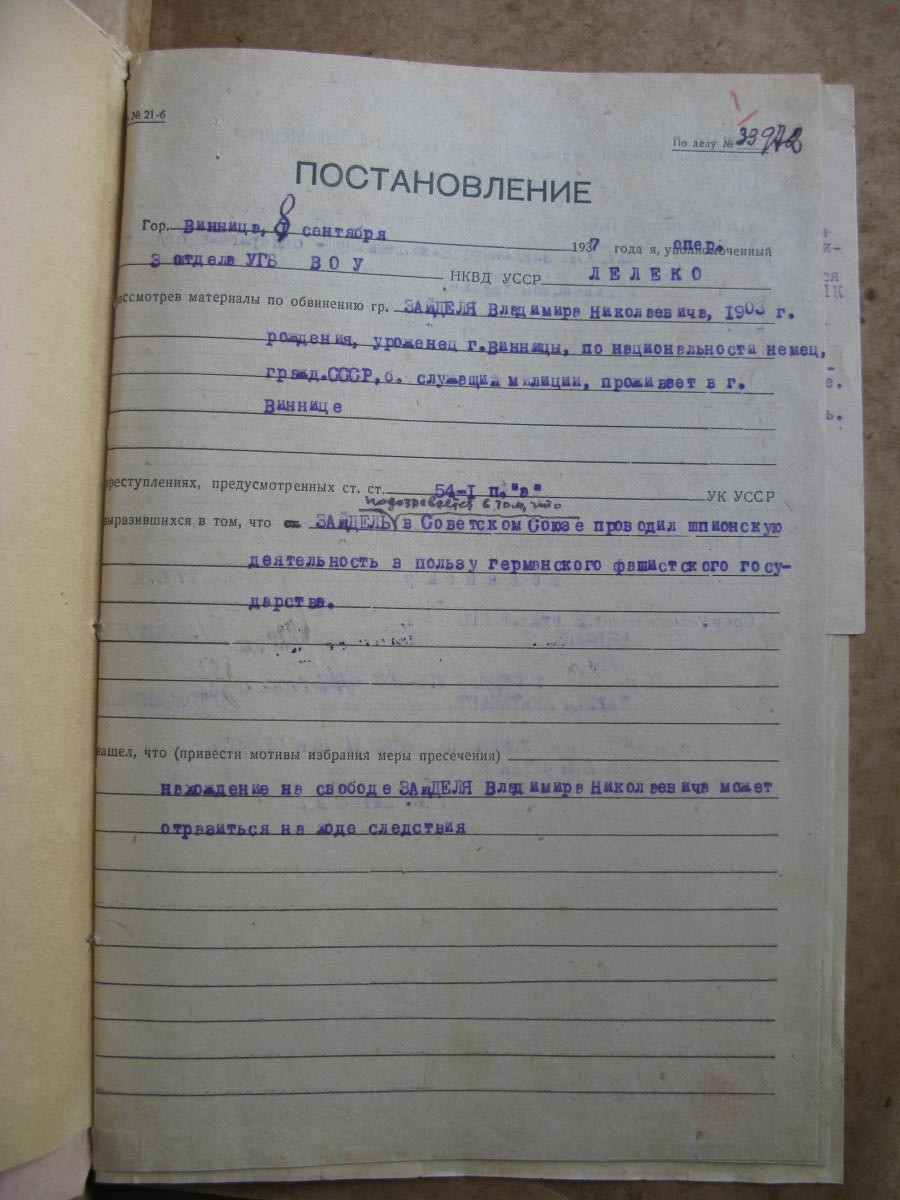 № 21-б
По делу № 33972
ПОСТАНОВЛЕНИЕ
Гор. Винница, 8 сентября 1937 года я, опер. уполномоченный
3 отдела УГБ ВОУ НКВД УССР ЛЕЛЕКО
рассмотрев материалы по обвинению гр. ЗАЙДЕЛЯ Владимира Николаевича, 1903 г.
рождения, уроженец г.Винницы, по национальности немец,
гражд.СССР, б. служащий милиции, проживает в г.
Виннице
преступлениях, предусмотренных ст. ст. 54-I п."а" УК УССР
подозревается в том, что
выразившихся в том, что ЗАЙДЕЛЬ в Советском Союзе проводил шпионскую
деятельность в пользу германского фашистского госу-
дарства.
нашел, что (привести мотивы избрания меры пресечения)
нахождение на свободе ЗАЙДЕЛЯ Владимира Николаевича может
отразиться на ходе следствия